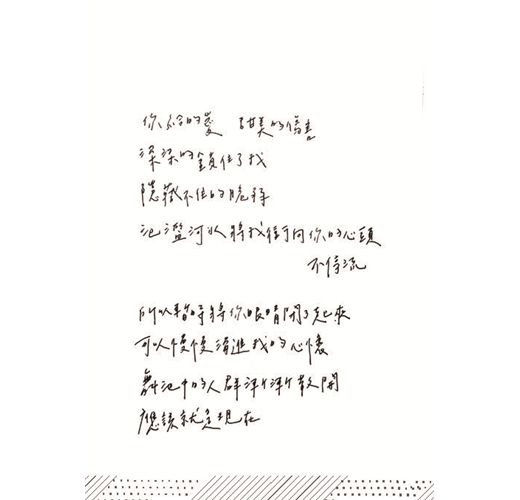 你給的愛 甜美的傷害
深深的鎖住了我
隱藏不住的脆弱
氾濫河水將我衝向你的心頭
不停流
所以暫時將你眼睛閉了起來
可以慢慢滑進我的心懷
舞池中的人群漸漸散開
應該就是現在